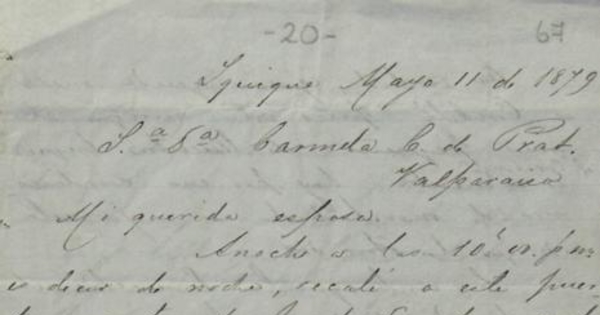 -20-
64
Iquique Mayo 11 de 1879
S.ª D.ª Carmela C. de Prat.
Valparaiso
Mi querida esposa.
Anoche a las 10 p.m.
es decir de noche, recalé a este puer-